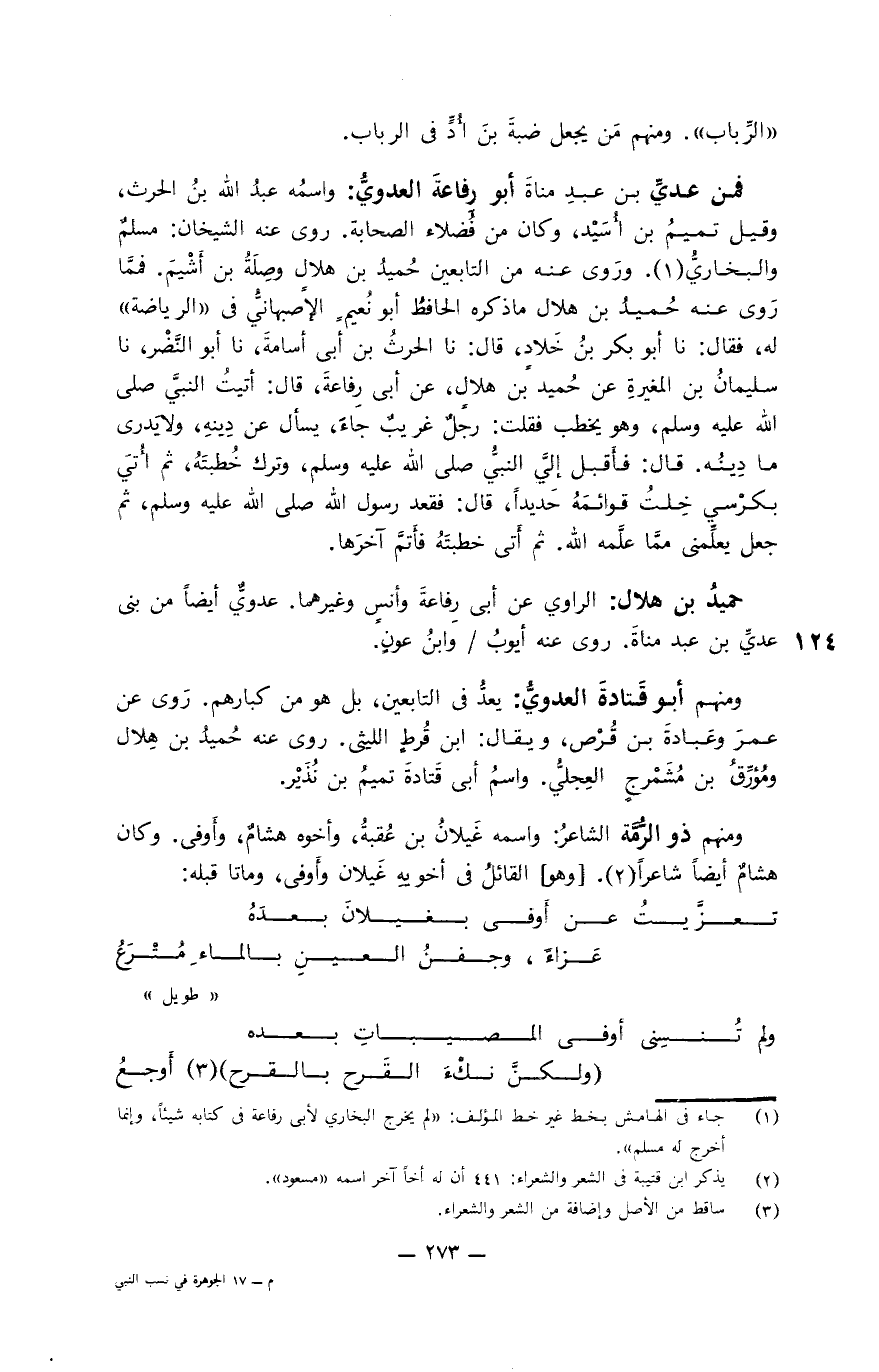 «الرِّباب». ومنهم مَن يجعل ضبةَ بنَ أُدٍّ فى الرباب.
فمن عديِّ بن عبدِ مناةَ أبو رِفاعةَ العدويُّ: واسمُه عبدُ الله بنُ الحرث،
وقيل تميمُ بن أُسَيْد، وكان من فُضلاء الصحابة. روى عنه الشيخان: مسلمٌ
والبخاريُّ(١). ورَوى عنه من التابعين حُميدُ بن هلالٍ وصِلَةُ بن أَشْيمَ. فمَّا
رَوى عنه حُميدُ بن هلال ماذكره الحافظُ أبو نُعيمٍ الإصبهانيُّ فى «الرياضة»
له، فقال: نا أبو بكر بنُ خَلادٍ، قال: نا الحرثُ بن أبى أسامةَ، نا أبو النَّضْر، نا
سليمانُ بن المغيرةِ عن حُميد بن هلالٍ، عن أبى رِفاعةَ، قال: أتيتُ النبيَّ صلى
الله عليه وسلم، وهو يخطب فقلت: رجلٌ غريبٌ جاءَ، يسأل عن دِينهِ، ولايَدرى
ما دِينُه. قال: فأقبل إليَّ النبيُّ صلى الله عليه وسلم، وترك خُطبتَهُ، ثم أُتيَ
بكرْسي خِلتُ قوائمَهُ حَديداً، قال: فقعد رسول الله صلى الله عليه وسلم، ثم
جعل يعلِّمنى ممَّا علَّمه الله. ثم أَتى خطبتَهُ فأتمَّ آخرَها.
حميدُ بن هلال: الراوي عن أبى رِفاعةَ وأنسٍ وغيرهما. عدويٌّ أيضاً من بنى
١٢٤ عديِّ بن عبد مناةَ. روى عنه أيوبُ / وابنُ عونٍ.
ومنهم أبو قتادةَ العدويُّ: يعدُّ فى التابعين، بل هو من كبارهم. رَوى عن
عمرَ وعَبادةَ بن قُرْص، ويقال: ابن قُرطٍ الليثى. روى عنه حُميدُ بن هِلال
ومُؤرِّقُ بن مُشَمْرجٍ العِجليُّ. واسمُ أبى قَتادةَ تميمُ بن نُذَيْر.
ومنهم ذو الرُّمَّة الشاعرُ: واسمه غَيلانُ بن عُقبةُ، وأخوه هشامٌ، وأَوفى. وكان
هشامٌ أيضاً شاعراً(٢). [وهو] القائلُ فى أخويهِ غَيلان وأوفى، وماتا قبله:
تعزَّيتُ عن أَوفى بغيلانَ بعدَهُ
عَزاءً ، وجفنُ العينِ بالماءِ مُتْرَعُ
« طويل »
ولم تُنسِنى أوفى المصيباتِ بعده
(ولكنَّ نكْءَ القَرح بالقرح)(٣) أَوجعُ
(١) جاء فى الهامش بخط غير خط المؤلف: «لم يخرج البخاري لأبى رفاعة فى كتابه شيئاً، وإنما
أخرج له مسلم».
(٢) يذكر ابن قتيبة فى الشعر والشعراء: ٤٤١ أن له أخاً آخر اسمه «مسعود».
(٣) ساقط من الأصل وإضافة من الشعر والشعراء.
— ٢٧٣ —
م — ١٧ الجوهرة في نسب النبي